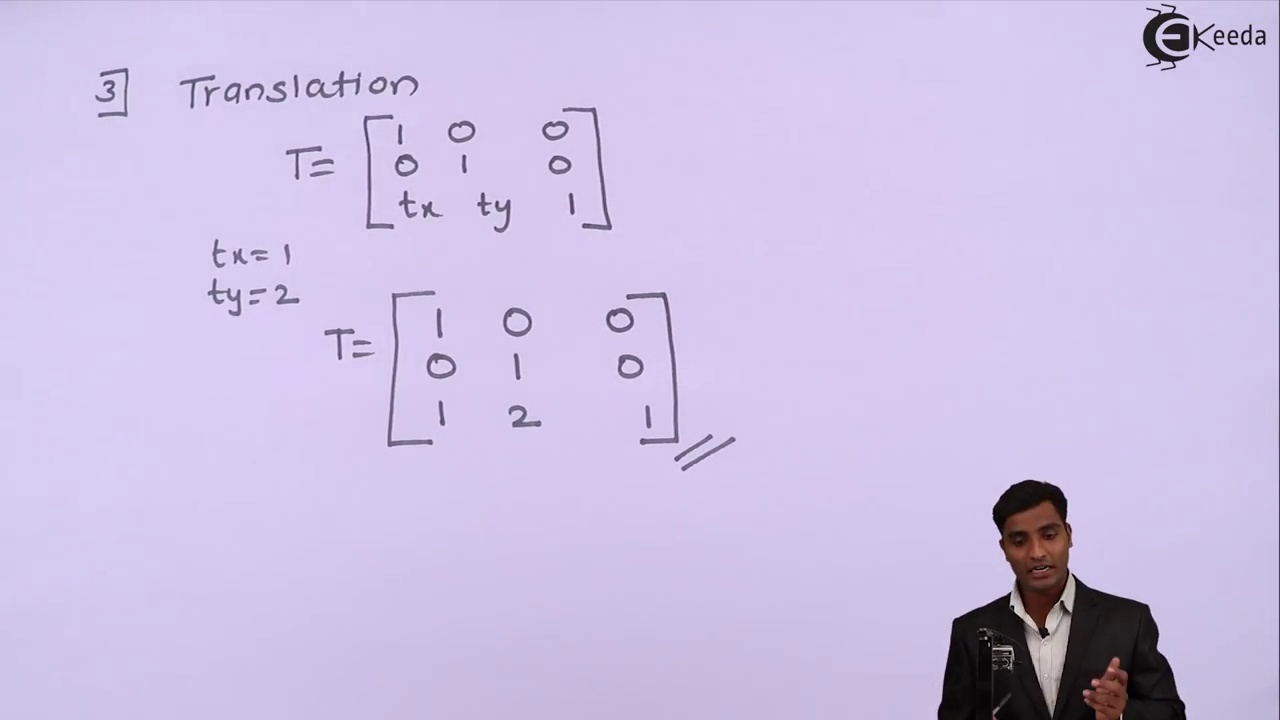 Ekeeda
3] Translation
T= [1 0 0
0 1 0
tx ty 1]
tx=1
ty=2
T= [1 0 0
0 1 0
1 2 1]